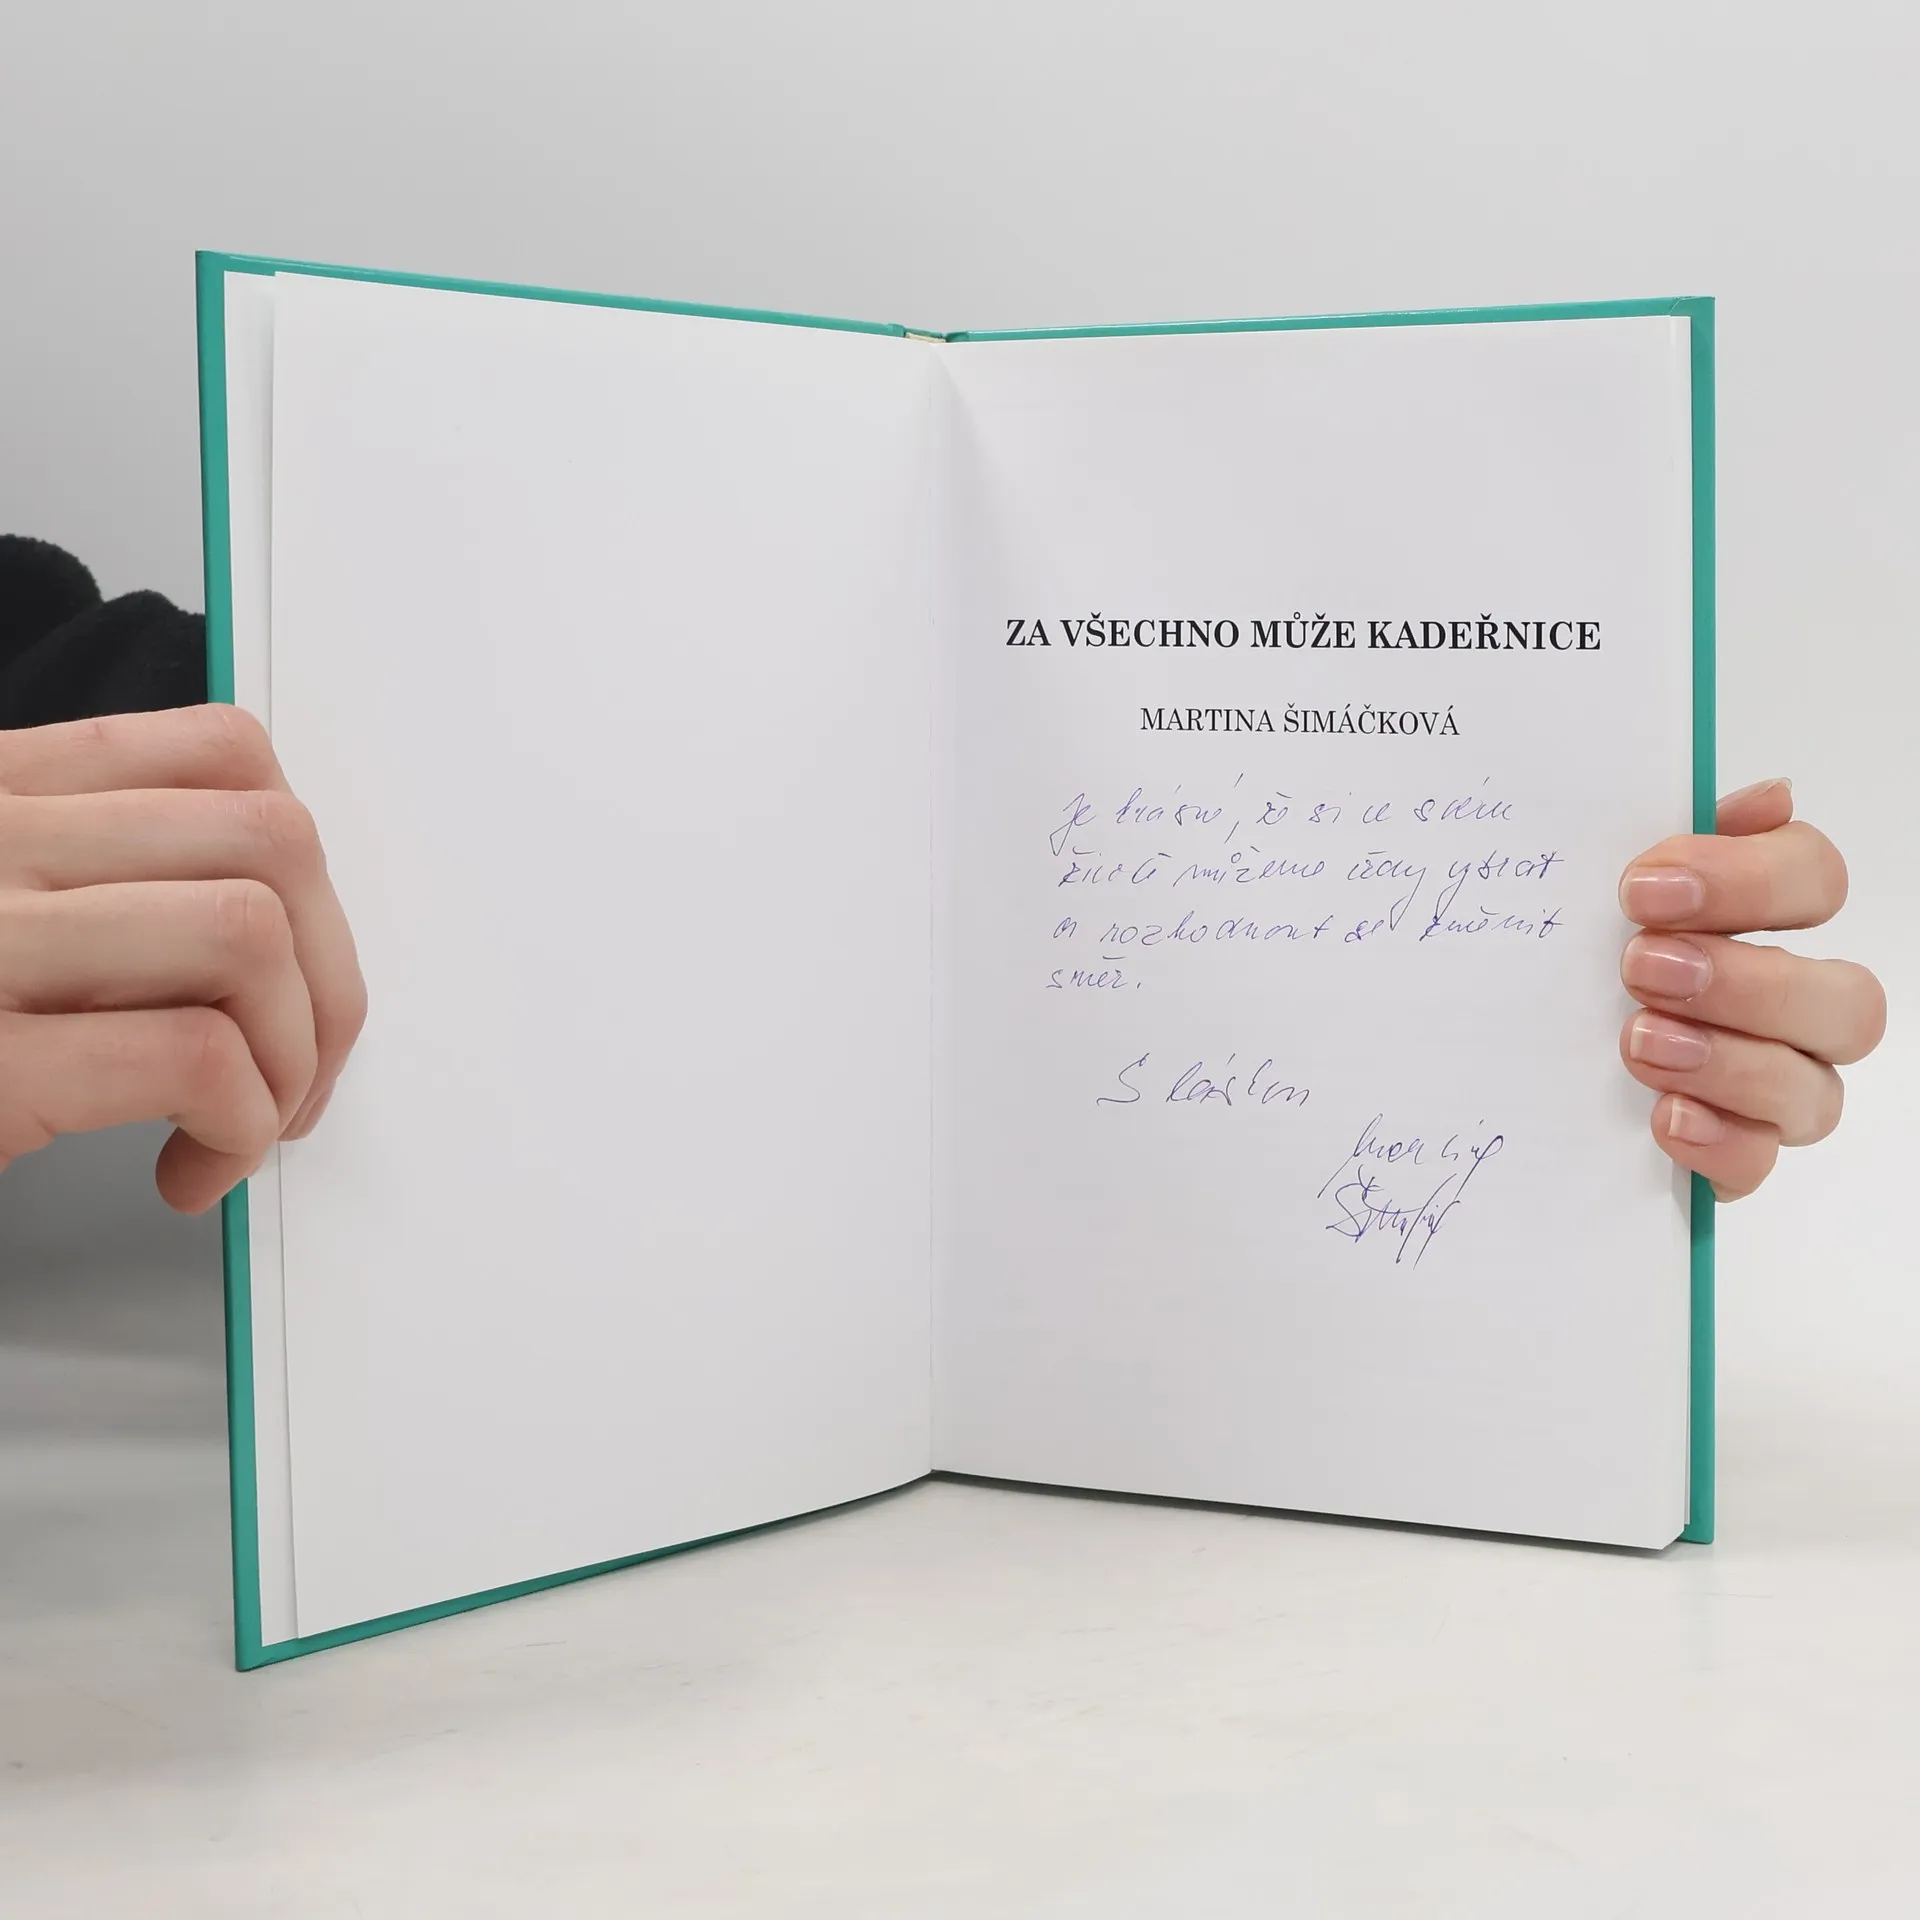 ZA VŠECHNO MŮŽE KADEŘNICE
MARTINA ŠIMÁČKOVÁ
Je krásné, že si ve svém
životě můžeme vždy vybrat
a rozhodnout se změnit
směr.
S láskou
Martina